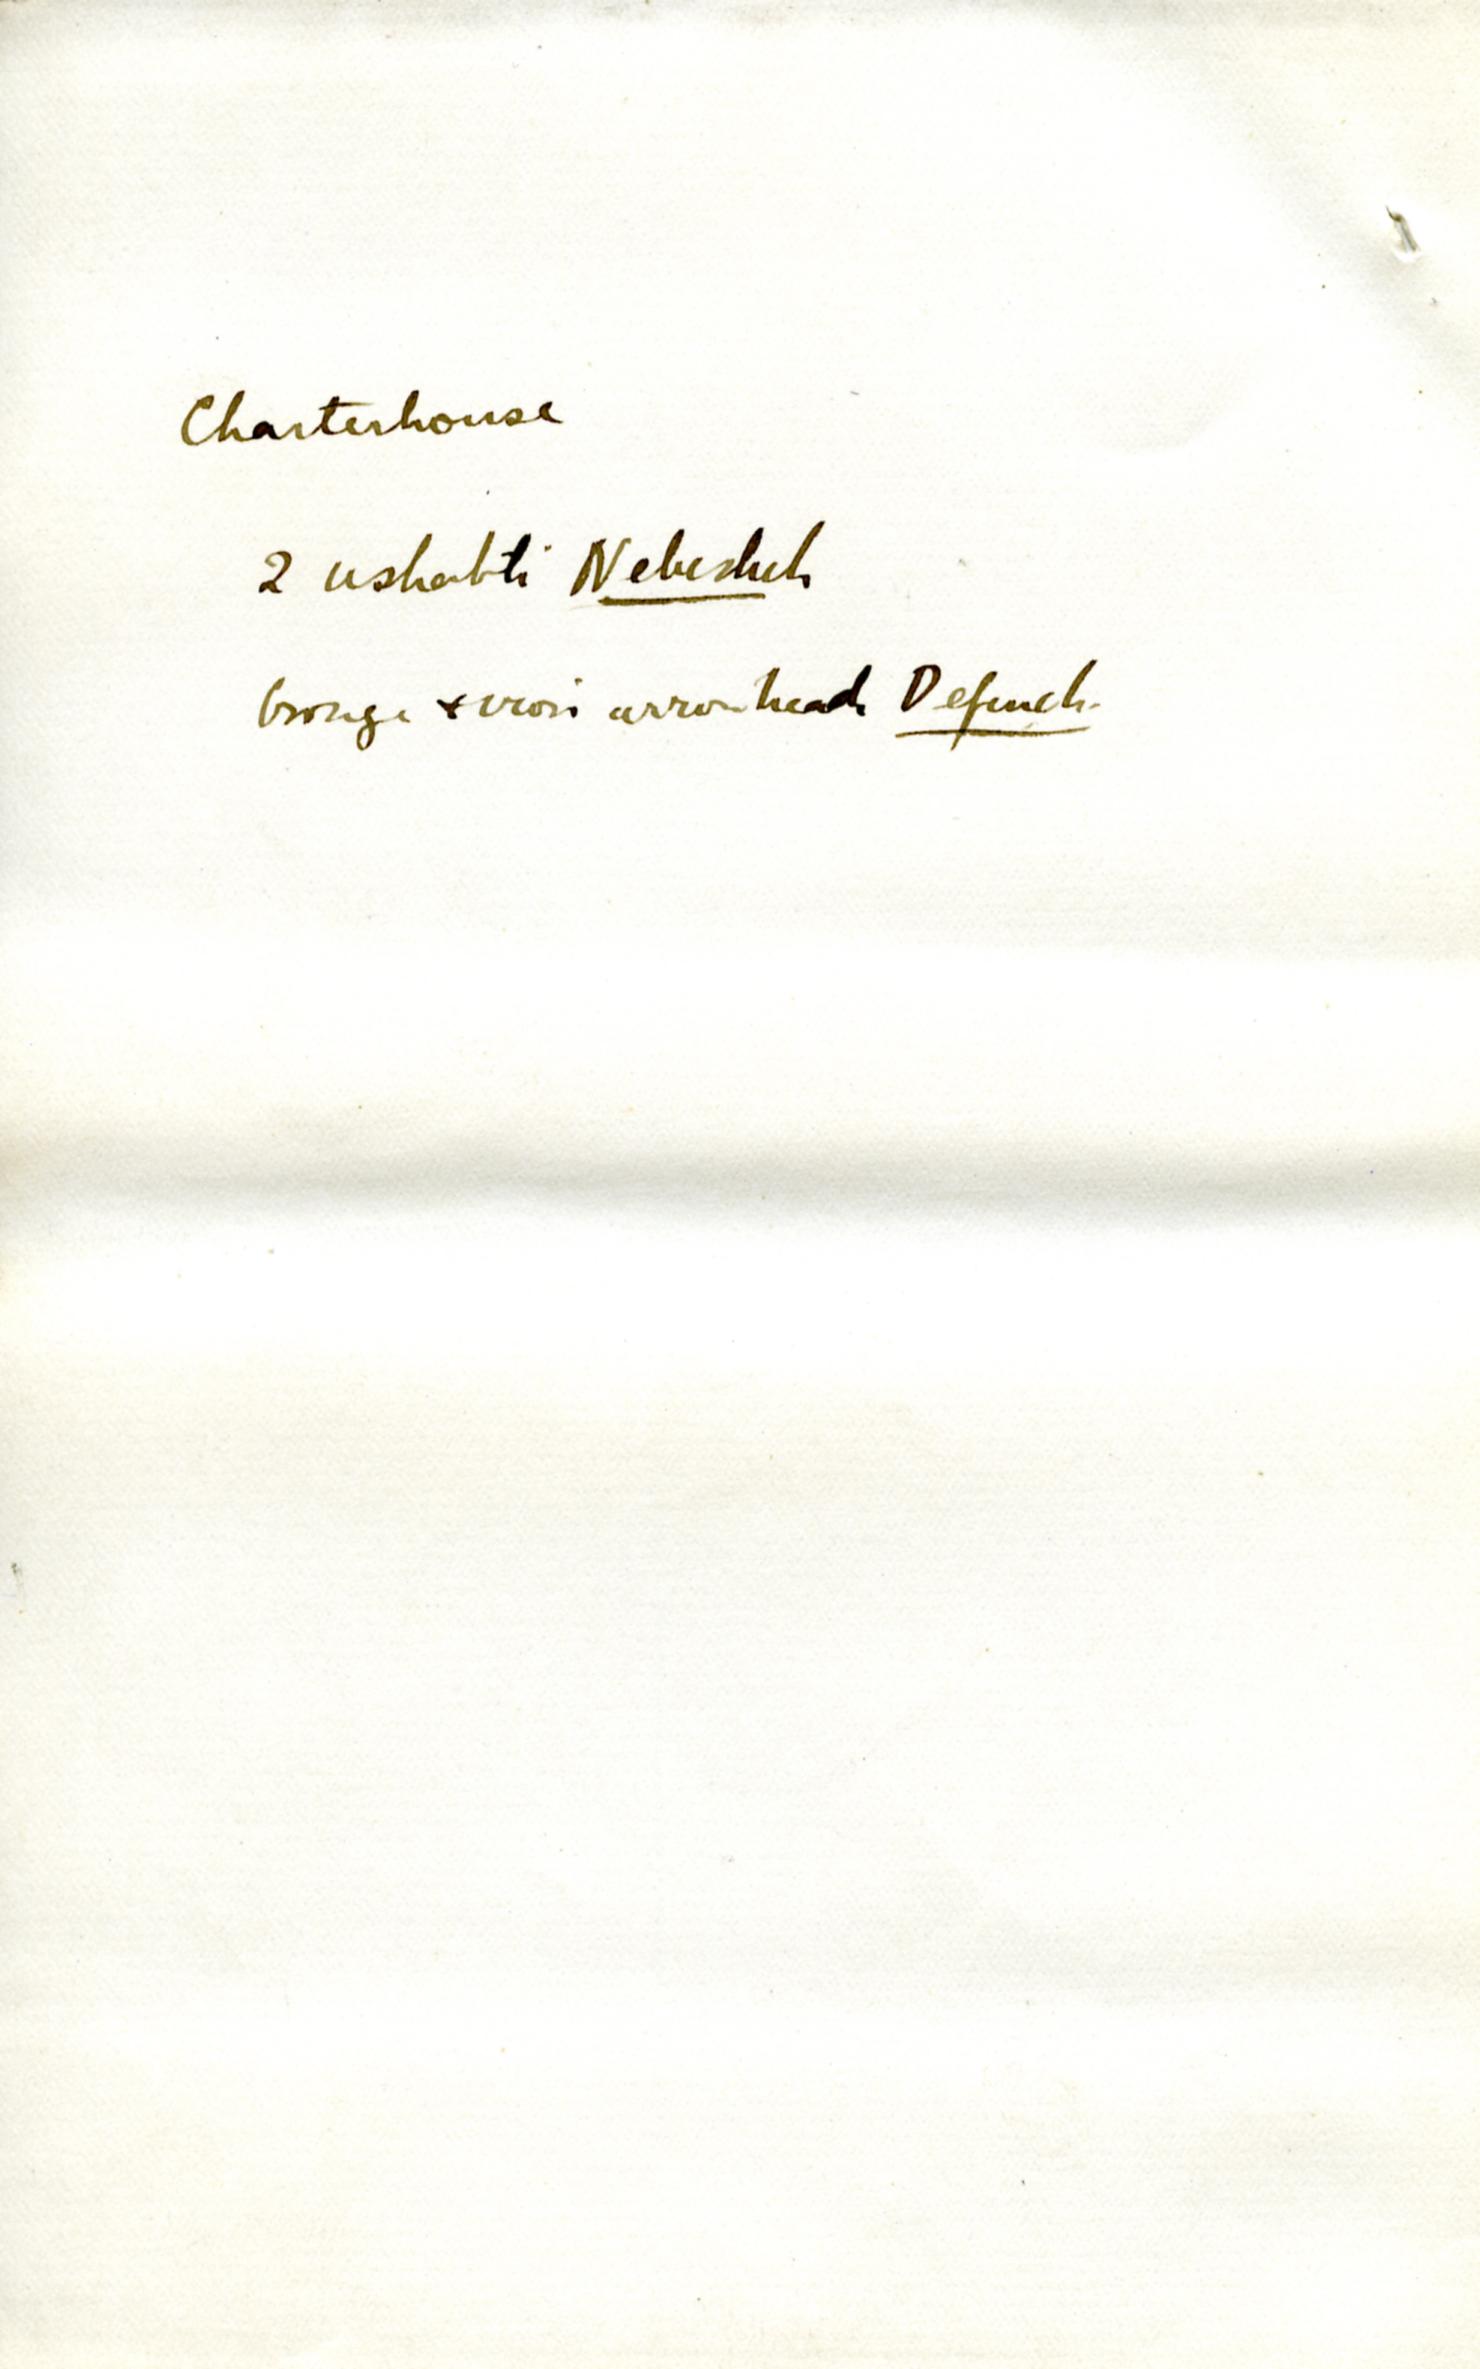 Charterhouse
2 ushabti Nebesheh
bronze & iron arrowheads Defeneh.